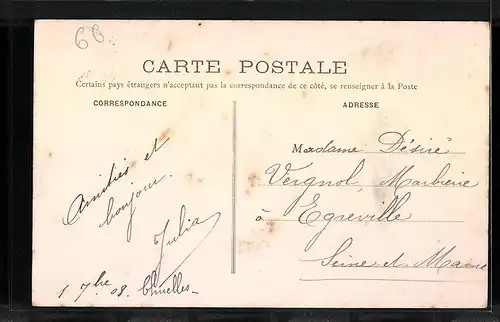 66
CARTE POSTALE
Certains pays étrangers n'acceptant pas la correspondance de ce côté, se renseigner à la Poste
CORRESPONDANCE
ADRESSE
Amitiés et
bonjour.
Julia
1 7bre 08. Chuelles
Madame Désiré
Vergnol, Marbrerie
à Egreville
Seine et Marne